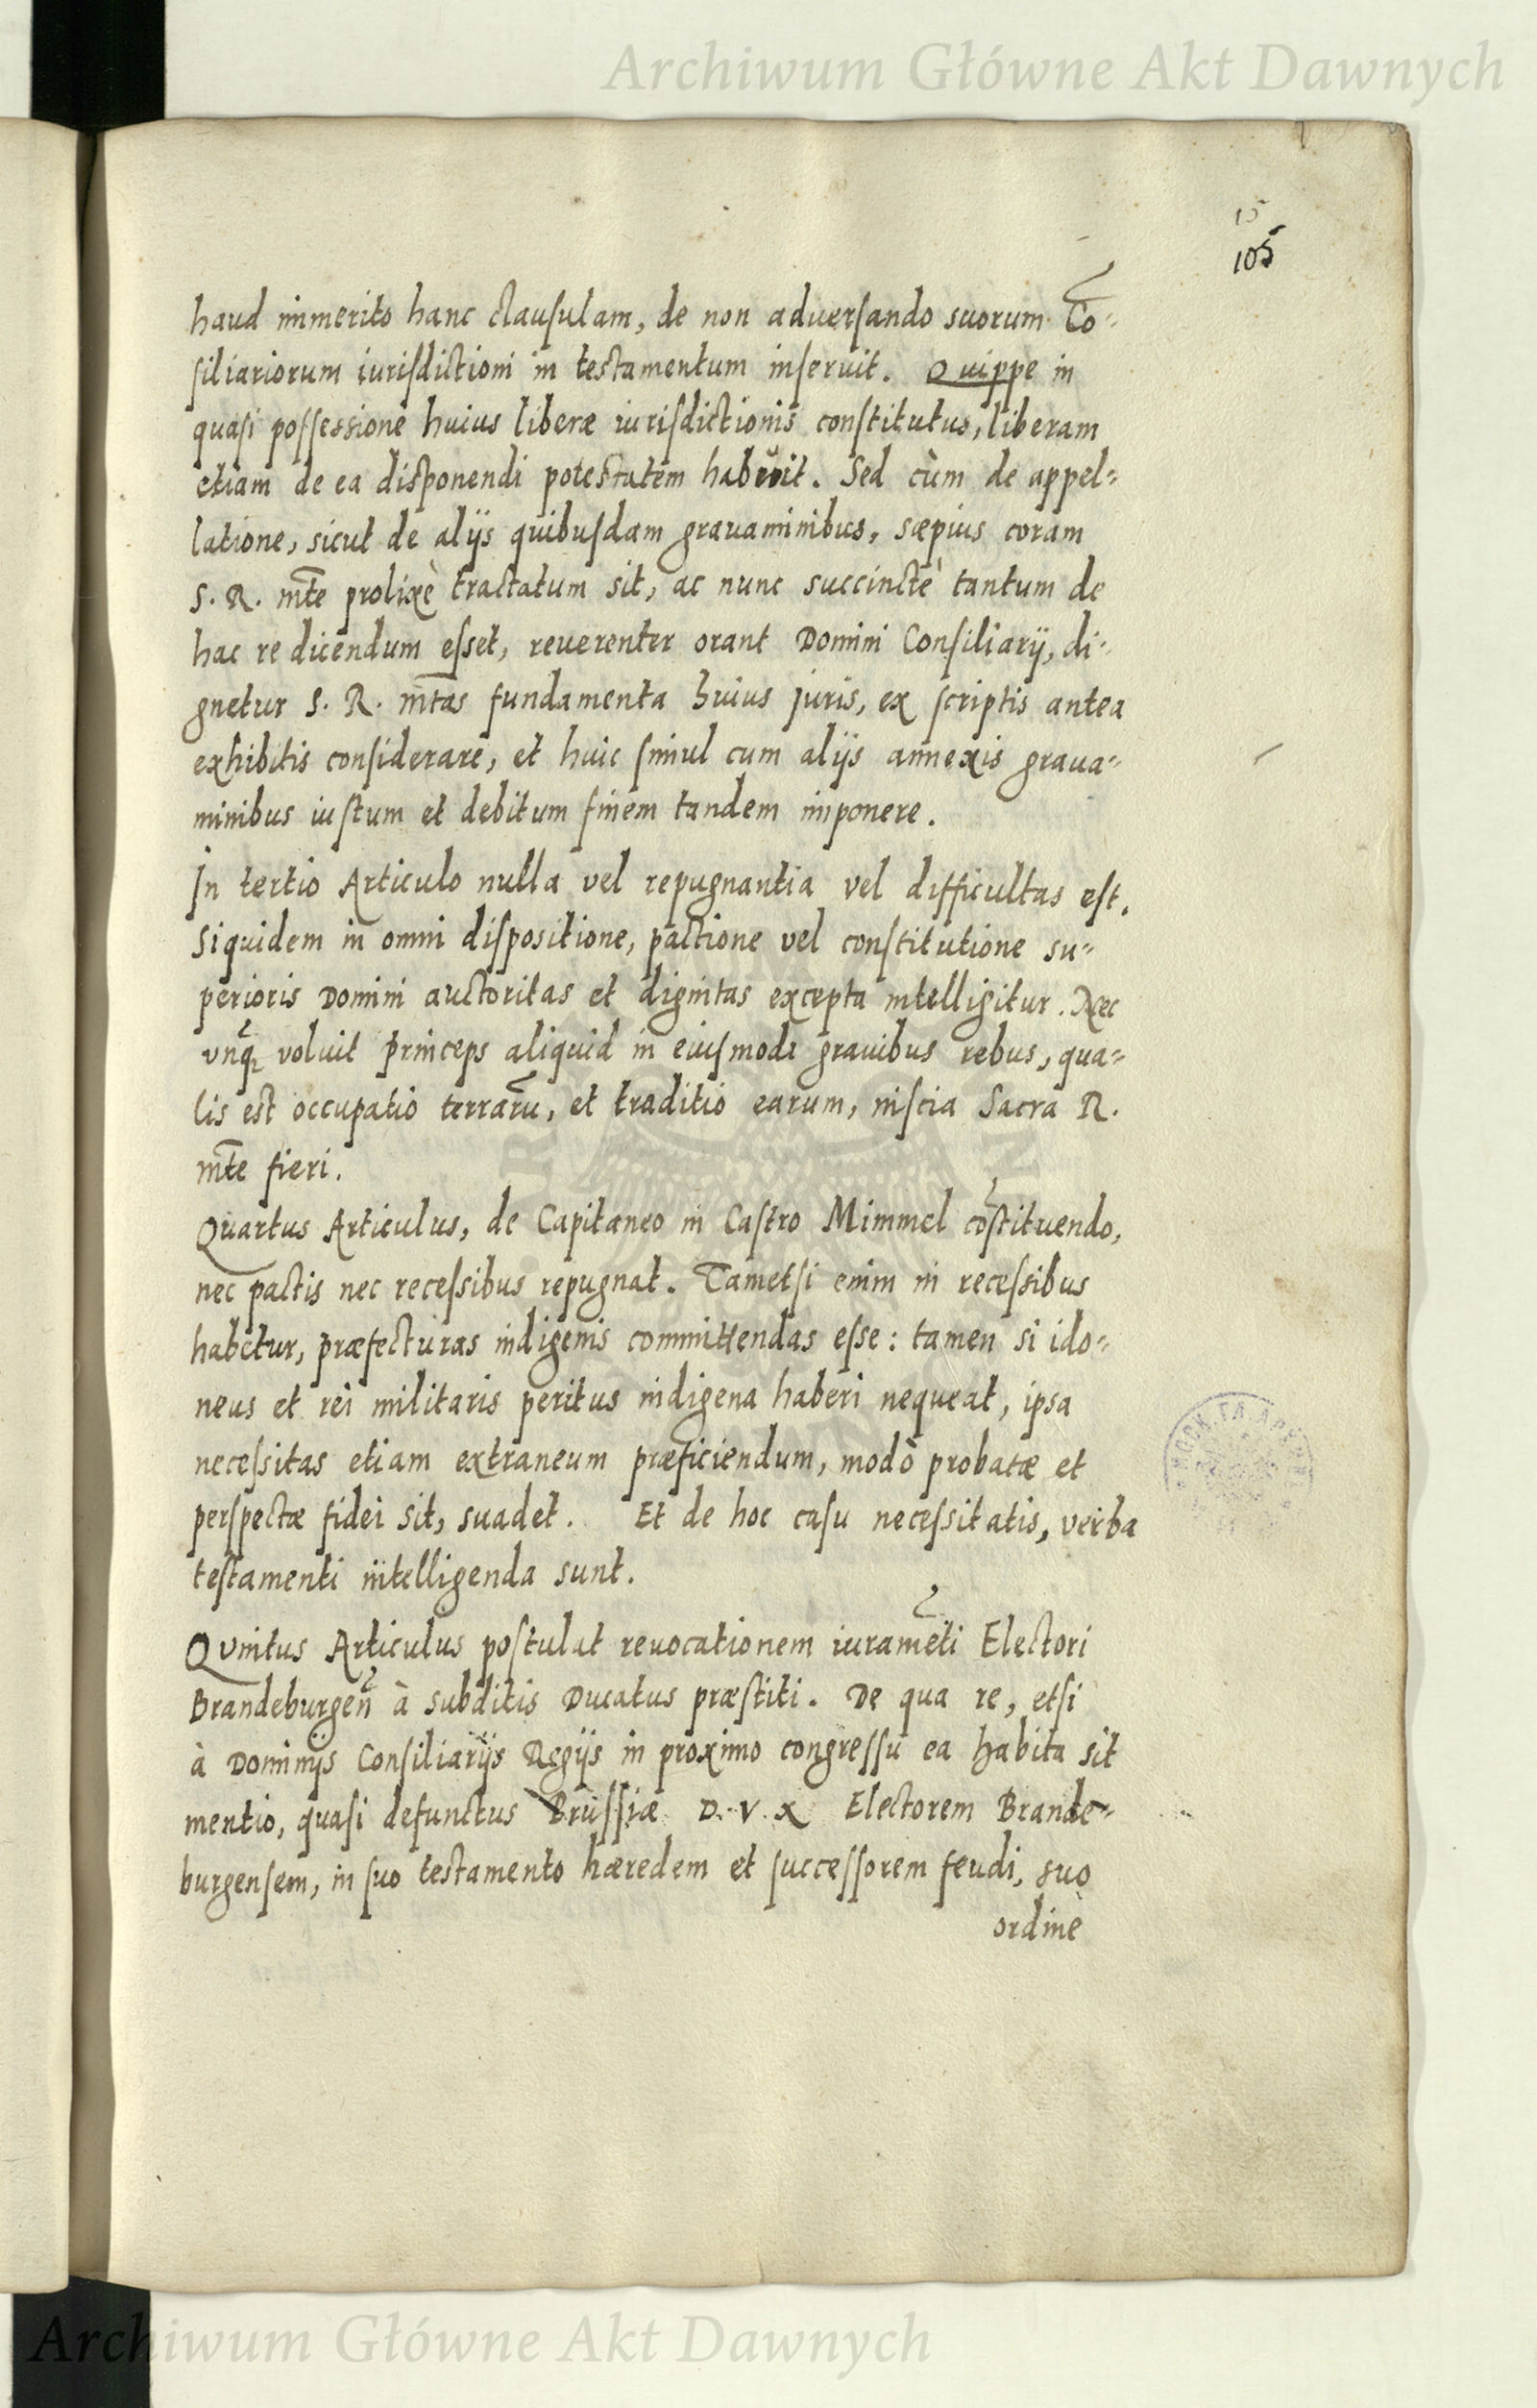 Archiwum Główne Akt Dawnych
15
105
haud immerito hanc clausulam, de non aduersando suorum Cō-
siliariorum iurisdictioni in testamentum inseruit. Quippe in
quasi possessione huius liberæ iurisdictionis constitutus, liberam
etiam de ea disponendi potestatem habuit. Sed cùm de appel-
latione, sicut de alijs quibusdam grauaminibus, sæpius coram
S. R. mte prolixè tractatum sit, ac nunc succinctè tantum de
hac re dicendum esset, reuerenter orant Domini Consiliarij, di-
gnetur S. R. mtas fundamenta huius juris, ex scriptis antea
exhibitis considerare, et huic simul cum alijs annexis graua-
minibus iustum et debitum finem tandem imponere.
In tertio Articulo nulla vel repugnantia vel difficultas est.
Siquidem in omni dispositione, pactione vel constitutione su-
perioris Domini auctoritas et dignitas excepta intelligitur. Nec
vnq̃ voluit Princeps aliquid in eiusmodi grauibus rebus, qua-
lis est occupatio terrarū, et traditio earum, inscia Sacra R.
mte fieri.
Quartus Articulus, de Capitaneo in Castro Mimmel cōstituendo,
nec pactis nec recessibus repugnat. Tametsi enim in recessibus
habetur, præfecturas indigenis committendas esse: tamen si ido-
neus et rei militaris peritus indigena haberi nequeat, ipsa
necessitas etiam extraneum præficiendum, modò probatæ et
perspectæ fidei sit, suadet. Et de hoc casu necessitatis, verba
testamenti intelligenda sunt.
Qvintus Articulus postulat reuocationem iuramēti Electori
Brandeburgeñ à subditis Ducatus præstiti. De qua re, etsi
à Dominijs Consiliarijs Regijs in proximo congressu ea habita sit
mentio, quasi defunctus Prussiæ D. V. X Electorem Brande-
burgensem, in suo testamento hæredem et successorem feudi, suo
ordine
Archiwum Główne Akt Dawnych